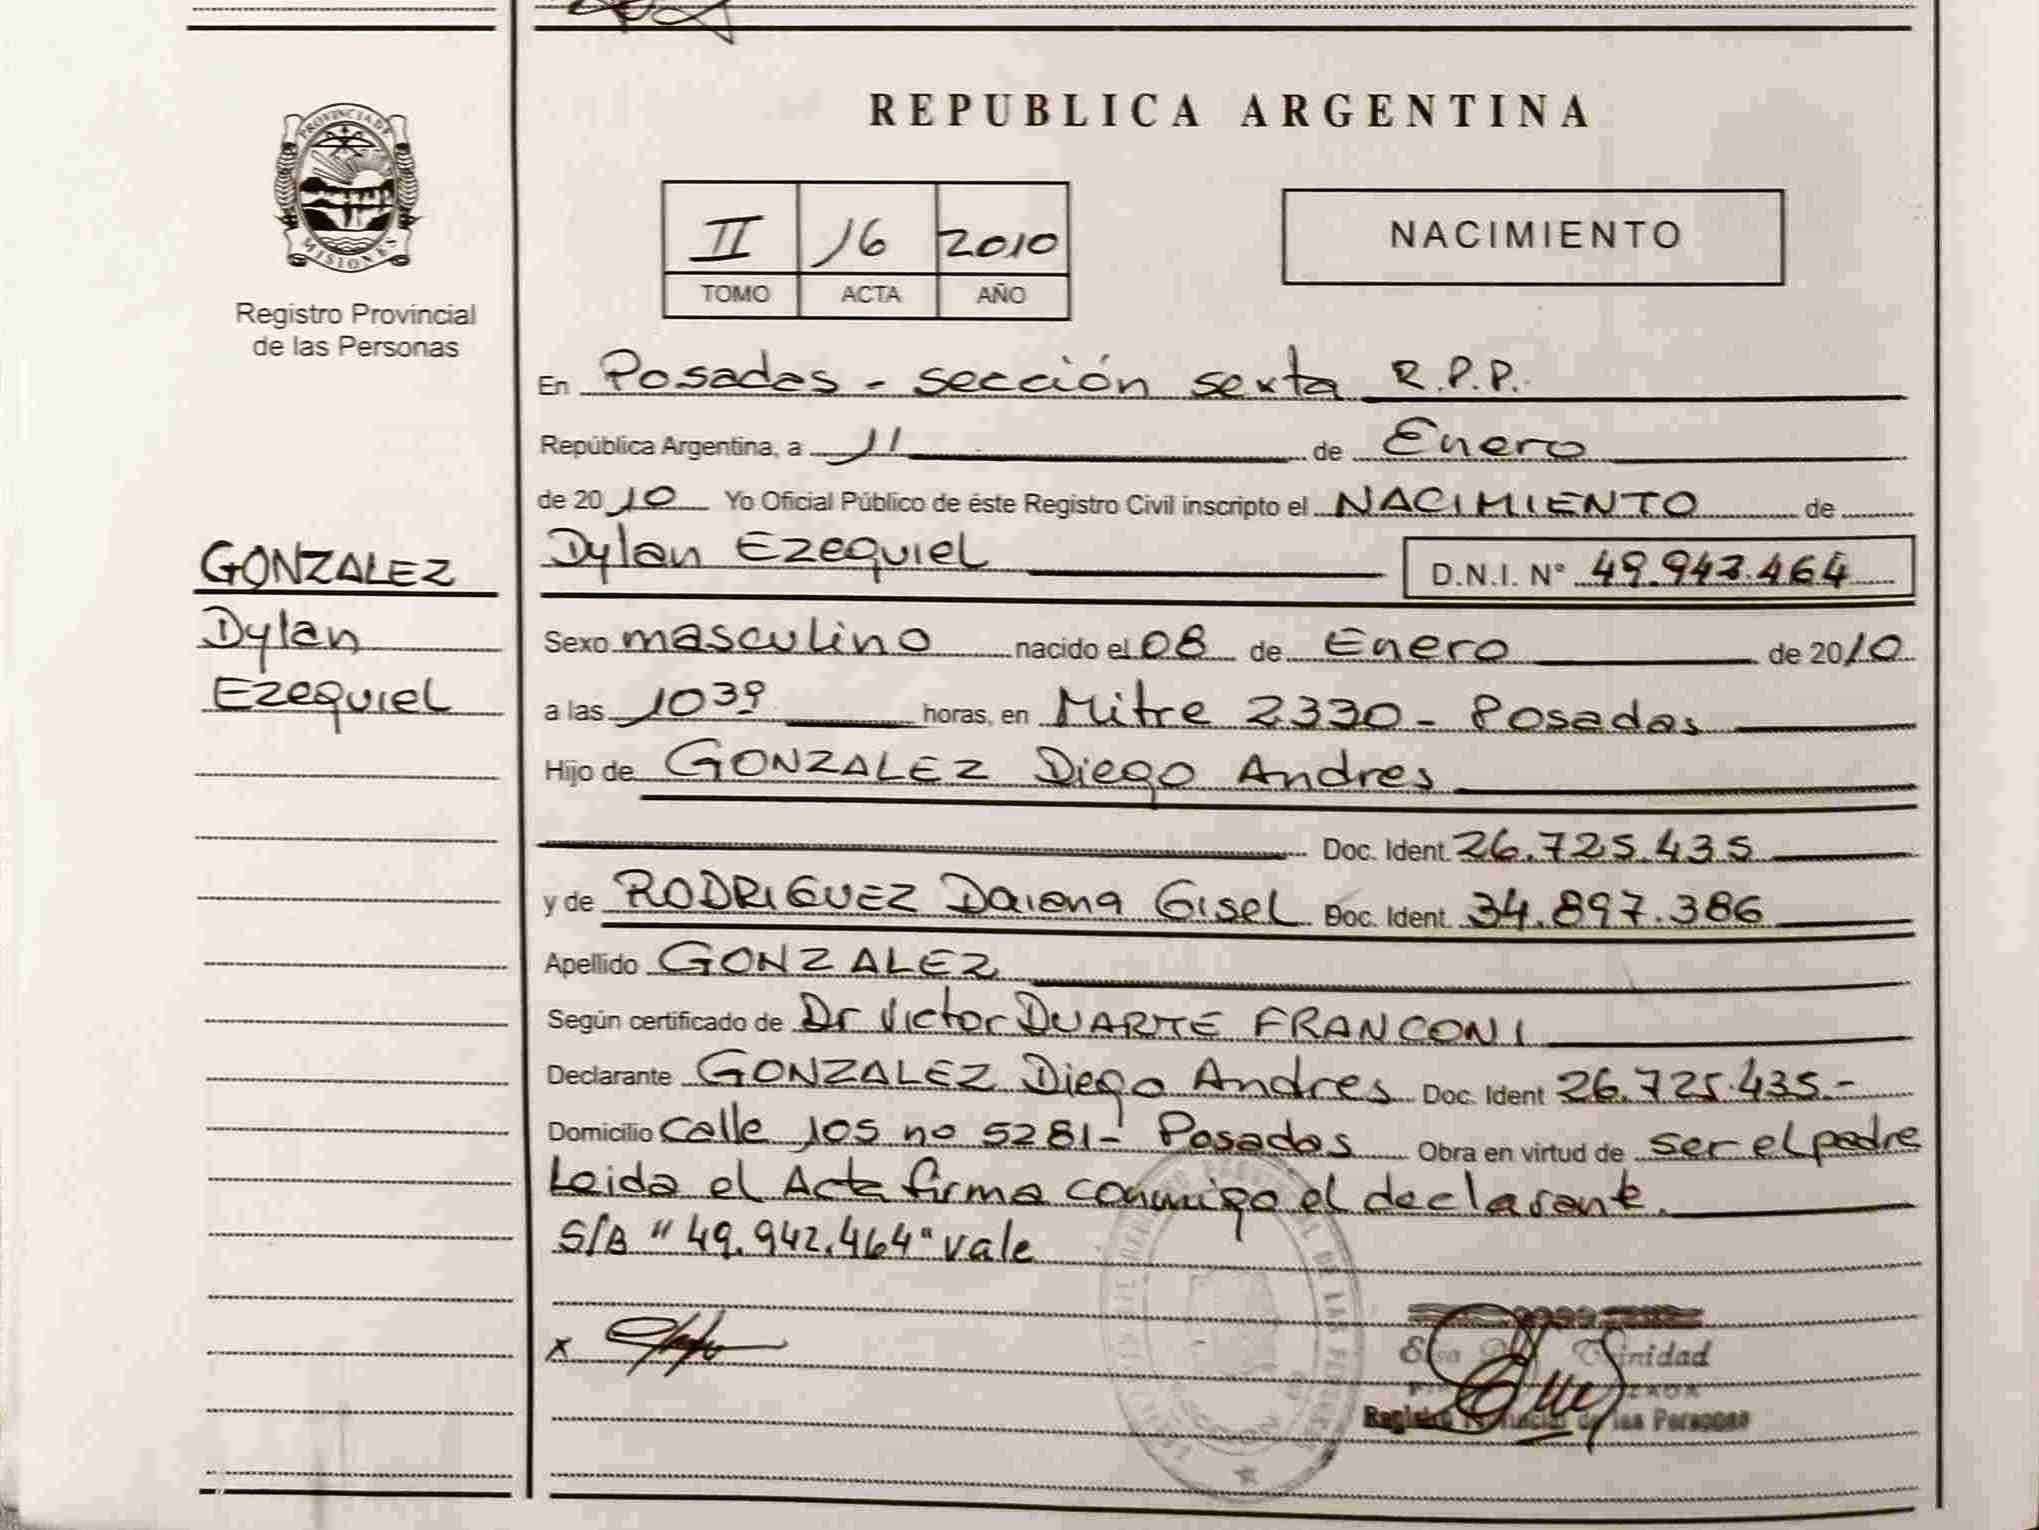 PROVINCIA DE
MISIONES
Registro Provincial
de las Personas
GONZALEZ
Dylan
Ezequiel
REPUBLICA ARGENTINA
II 16 2010
TOMO ACTA AÑO
NACIMIENTO
En Posadas - sección sexta R.P.P.
República Argentina, a 11 de Enero
de 2010 Yo Oficial Público de éste Registro Civil inscripto el NACIMIENTO de
Dylan Ezequiel D.N.I. N° 49.942.464
Sexo masculino nacido el 08 de Enero de 2010
a las 10 30 horas, en Mitre 2330 - Posadas
Hijo de GONZALEZ Diego Andres
Doc. Ident. 26.725.435
y de RODRIGUEZ Daiana Gisel Doc. Ident. 34.897.386
Apellido GONZALEZ
Según certificado de Dr Victor DUARTE FRANCONI
Declarante GONZALEZ Diego Andres Doc. Ident 26.725.435-
Domicilio calle 105 no 5281- Posadas Obra en virtud de ser el padre
Leida el Acta firma conmigo el declarante.
S/B "49.942.464" vale
x
Trinidad
Registro Provincial de las Personas